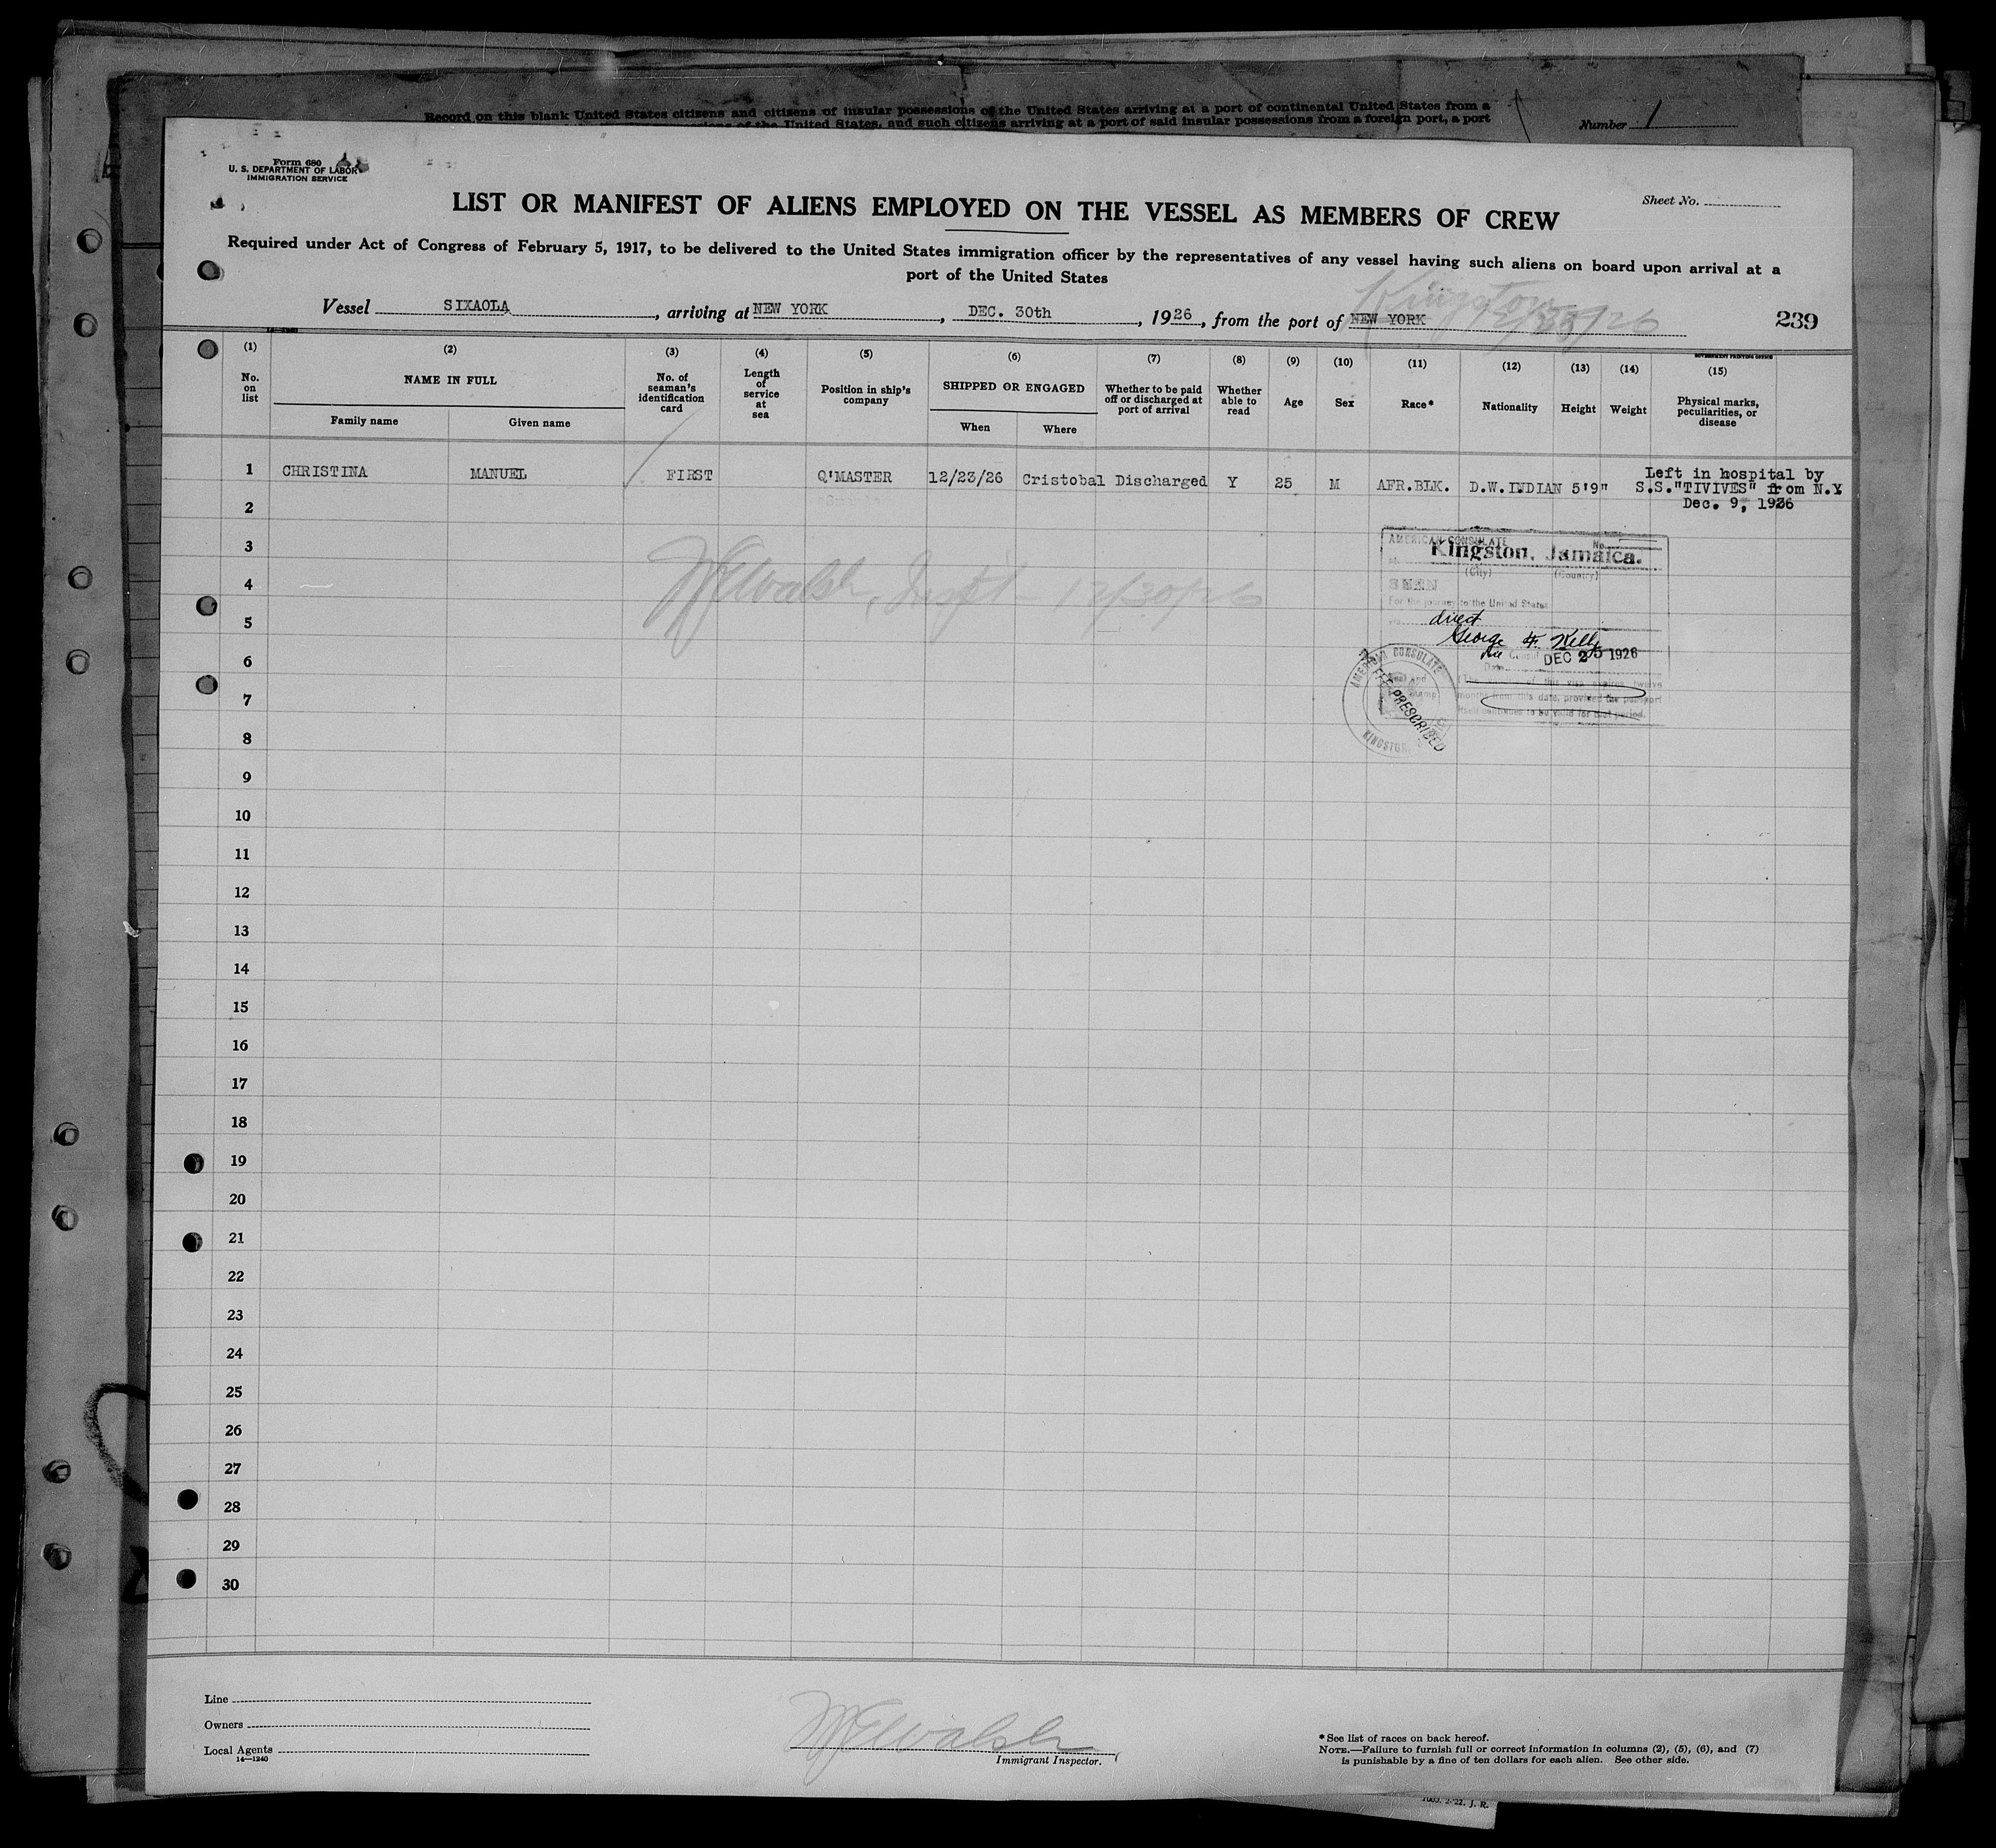 Record on this blank United States citizens and citizens of insular possessions of the United States arriving at a port of continental United States from a
possessions of the United States, and such citizens arriving at a port of said insular possessions from a foreign port, a port
Number 1
Form 680
U. S. DEPARTMENT OF LABOR
IMMIGRATION SERVICE
Sheet No.
LIST OR MANIFEST OF ALIENS EMPLOYED ON THE VESSEL AS MEMBERS OF CREW
Required under Act of Congress of February 5, 1917, to be delivered to the United States immigration officer by the representatives of any vessel having such aliens on board upon arrival at a
port of the United States
Kingston
12/25/26
Vessel SIXAOLA, arriving at NEW YORK, DEC. 30th, 1926, from the port of NEW YORK
239
GOVERNMENT PRINTING OFFICE
(1) (2) (3) (4) (5) (6) (7) (8) (9) (10) (11) (12) (13) (14) (15)
No. on list
NAME IN FULL
Family name
Given name
No. of seaman's identification card
Length of service at sea
Position in ship's company
SHIPPED OR ENGAGED
When
Where
Whether to be paid off or discharged at port of arrival
Whether able to read
Age
Sex
Race*
Nationality
Height
Weight
Physical marks, peculiarities, or disease
1 CHRISTINA MANUEL FIRST Q'MASTER 12/23/26 Cristobal Discharged Y 25 M AFR.BLK. D.W.INDIAN 5'9" Left in hospital by
S.S."TIVIVES" from N.Y
Dec. 9, 1926
2
3
4
5
6
7
8
9
10
11
12
13
14
15
16
17
18
19
20
21
22
23
24
25
26
27
28
29
30
W E Walsh, Inspt 12/30/26
AMERICAN CONSULATE
No.
at Kingston, Jamaica.
(City) (Country)
SEEN
For the journey to the United States
via direct
George F. Kelly
Vice Consul
DEC 25 1926
Date
Seal and stamp
The validity of this visa expires twelve
months from this date, provided the passport
itself continues to be valid for that period.
AMERICAN CONSULATE
KINGSTON
NO FEE PRESCRIBED
Line
Owners
Local Agents
14—1240
W E Walsh
Immigrant Inspector.
* See list of races on back hereof.
NOTE.—Failure to furnish full or correct information in columns (2), (5), (6), and (7)
is punishable by a fine of ten dollars for each alien. See other side.